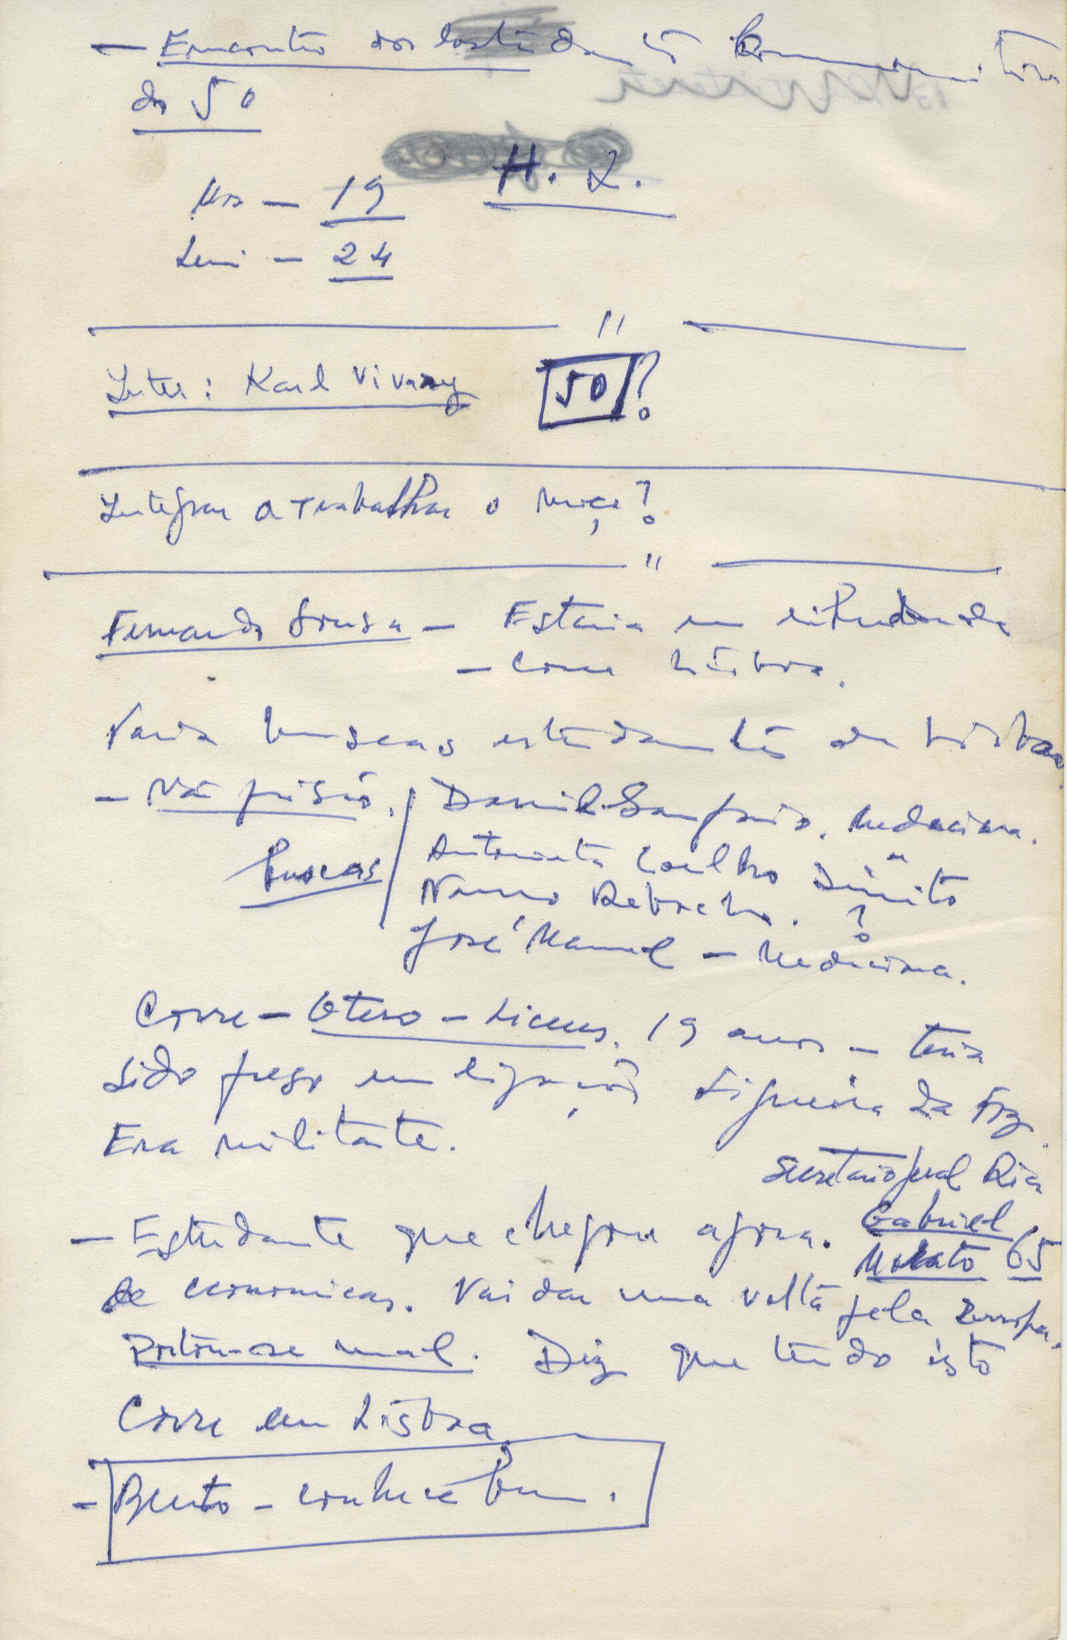 — Encontro dos
de 50
H. L.
Nós — 19
Leni — 24
"
Inter: Karl Vivary 50?
Integrar a trabalhar o moço?
"
Fernando Sousa — Estaria em liberdade
— Corre Lisboa.
Várias buscas estudantes de Lisboa
— Na prisão. Daniel Sampaio. Medicina.
Buscas Antonieta Coelho Direito
Nuno Rebocho. ?
José Manuel — Medicina.
Corre — Otero — Liceus. 19 anos — teria
sido preso em ligação Figueira da Foz.
Era militante.
Secretário geral Ria
— Estudante que chegou agora. Gabriel
Morato 65
de economicas. Vai dar uma volta pela Europa.
Portou-se mal. Diz que tudo isto
Corre em Lisboa
— Bento — conhece bem.